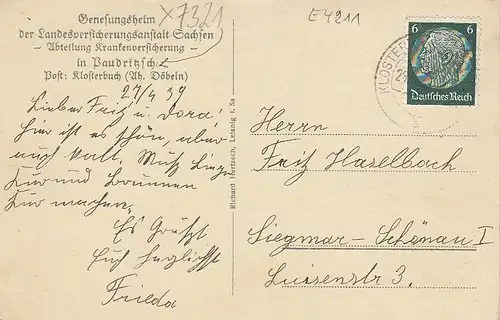 Genesungsheim
der Landesversicherungsanstalt Sachsen
- Abteilung Krankenversicherung -
in Paudritzsch
Post: Klosterbuch (Ah. Döbeln)
X7321
E4211
27/4 39
Lieber Fritz u. Dora!
Hier ist es schön, aber
auch kalt. Muß Liege
Kur und Brunnen
Kur machen.
Es Grüßt
Euch herzlichst
Frieda
Richard Hertzsch, Leisnig i. Sa
6 6
Deutsches Reich
KLOSTER
Herrn
Fritz Haselbach
Siegmar-Schönau I
Luisenstr 3.